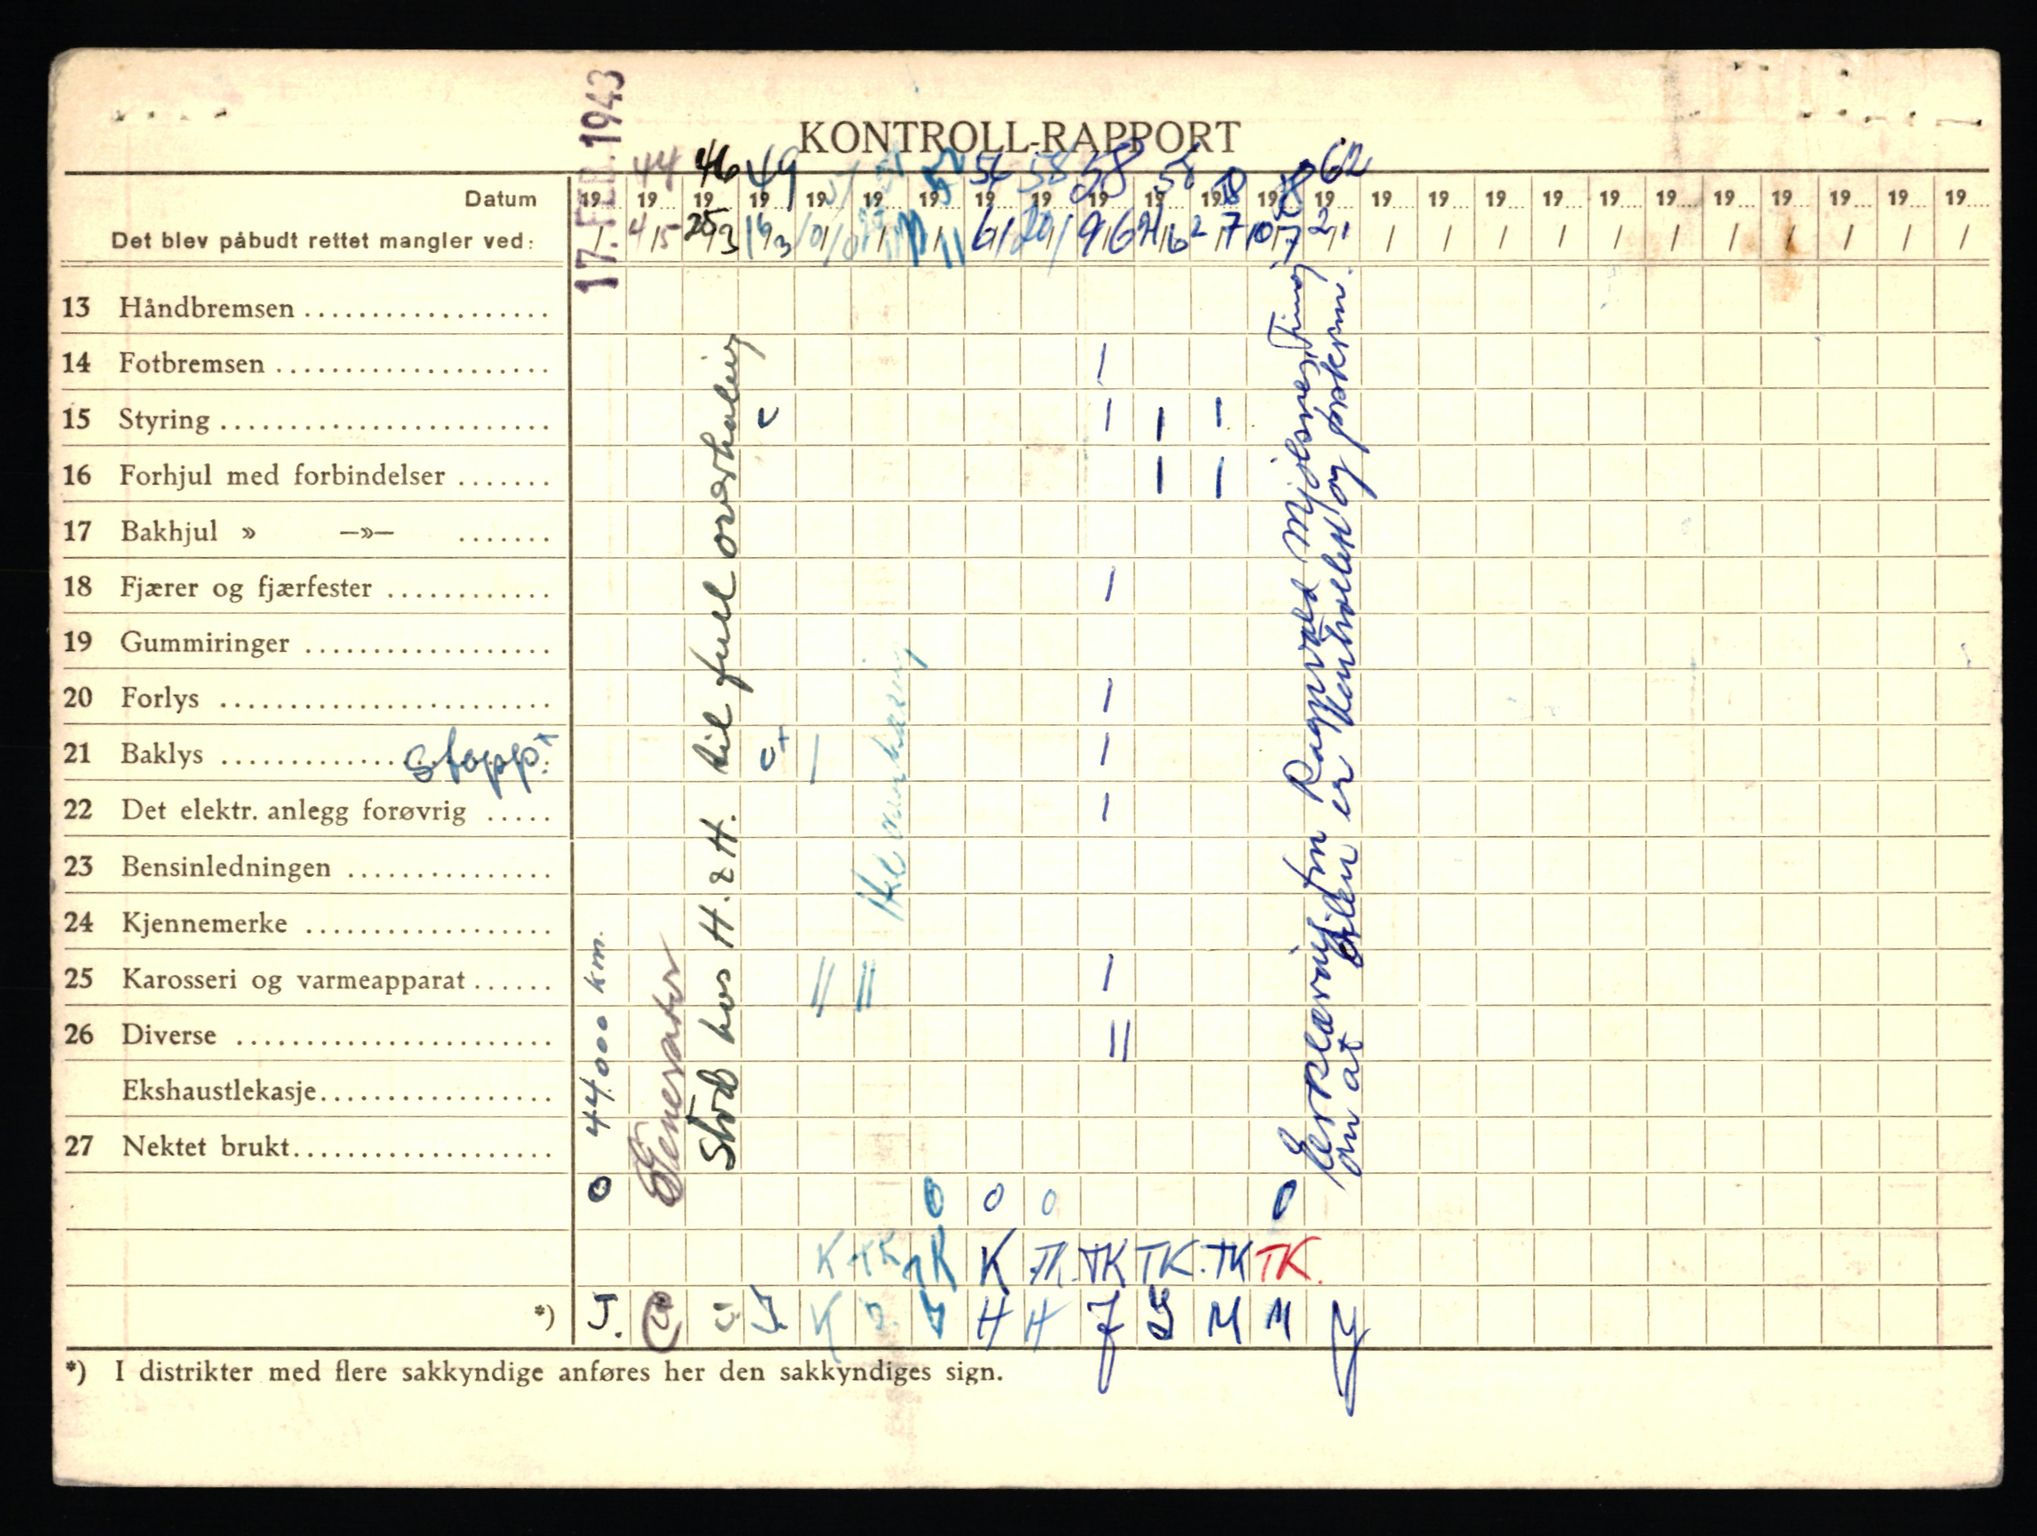 17. FEB. 1943
KONTROLL-RAPPORT
44 46 49 51 51 52 56 58 58 58 58 58 62
Datum 19 19 19 19 19 19 19 19 19 19 19 19 19 19 19 19 19 19 19 19 19 19 19 19 19
Det blev påbudt rettet mangler ved: / 4/5 25/3 16/3 10/10 / 11/11 6/1 20/1 9/6 21/6 2/7 10/7 2/1 / / / / / / / / / / /
13 Håndbremsen
14 Fotbremsen /
15 Styring c / / /
16 Forhjul med forbindelser / /
17 Bakhjul » —»—
18 Fjærer og fjærfester /
19 Gummiringer
20 Forlys /
21 Baklys stopp: x c+ / /
22 Det elektr. anlegg forøvrig /
23 Bensinledningen
24 Kjennemerke
25 Karosseri og varmeapparat // // /
26 Diverse //
Ekshaustlekasje
27 Nektet brukt
0 44.000 km.
Generator
Stod hos H. & H. til full overhaling
Erklæring fra Ragnvald Mjølsnes, Tinoj
om at bilen er kontrollert og forskrm.
0 0 0 0 0
K TK TK K TK TK TK TK TK
*) J. J. K J. J H H J J M M
*) I distrikter med flere sakkyndige anføres her den sakkyndiges sign.